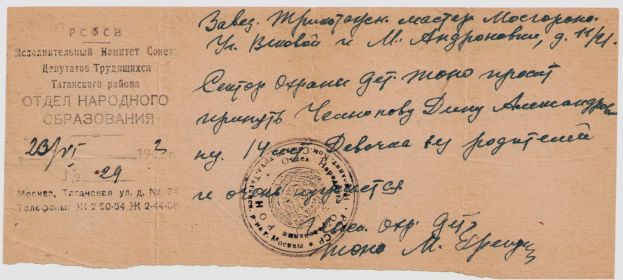 РСФСР
Исполнительный Комитет Совета
Депутатов Трудящихся
Таганского района
ОТДЕЛ НАРОДНОГО
ОБРАЗОВАНИЯ
23/VI 194
№ 29
Москва, Таганская ул. д. №
Телефоны: Ж 2 50-34 Ж 2-44-06
Завед. Трикотажн. мастер Мосгороно.
Уг. и М. Андроновки, д.
Сектор охраны дет. РОНО просит
принуть Чеснокову Дину Александров
ну 14 лет. Девочка без родителей
и очень нуждается
охр. дет.
РОНО М.